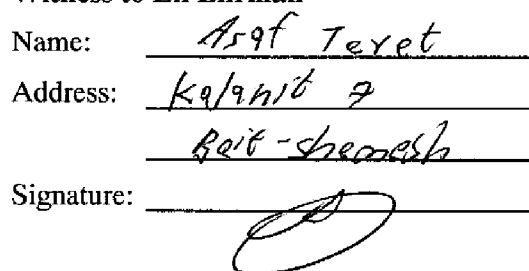 Name: Asaf Teret
Address: Kalanit 7
Beit-shemesh
Signature: